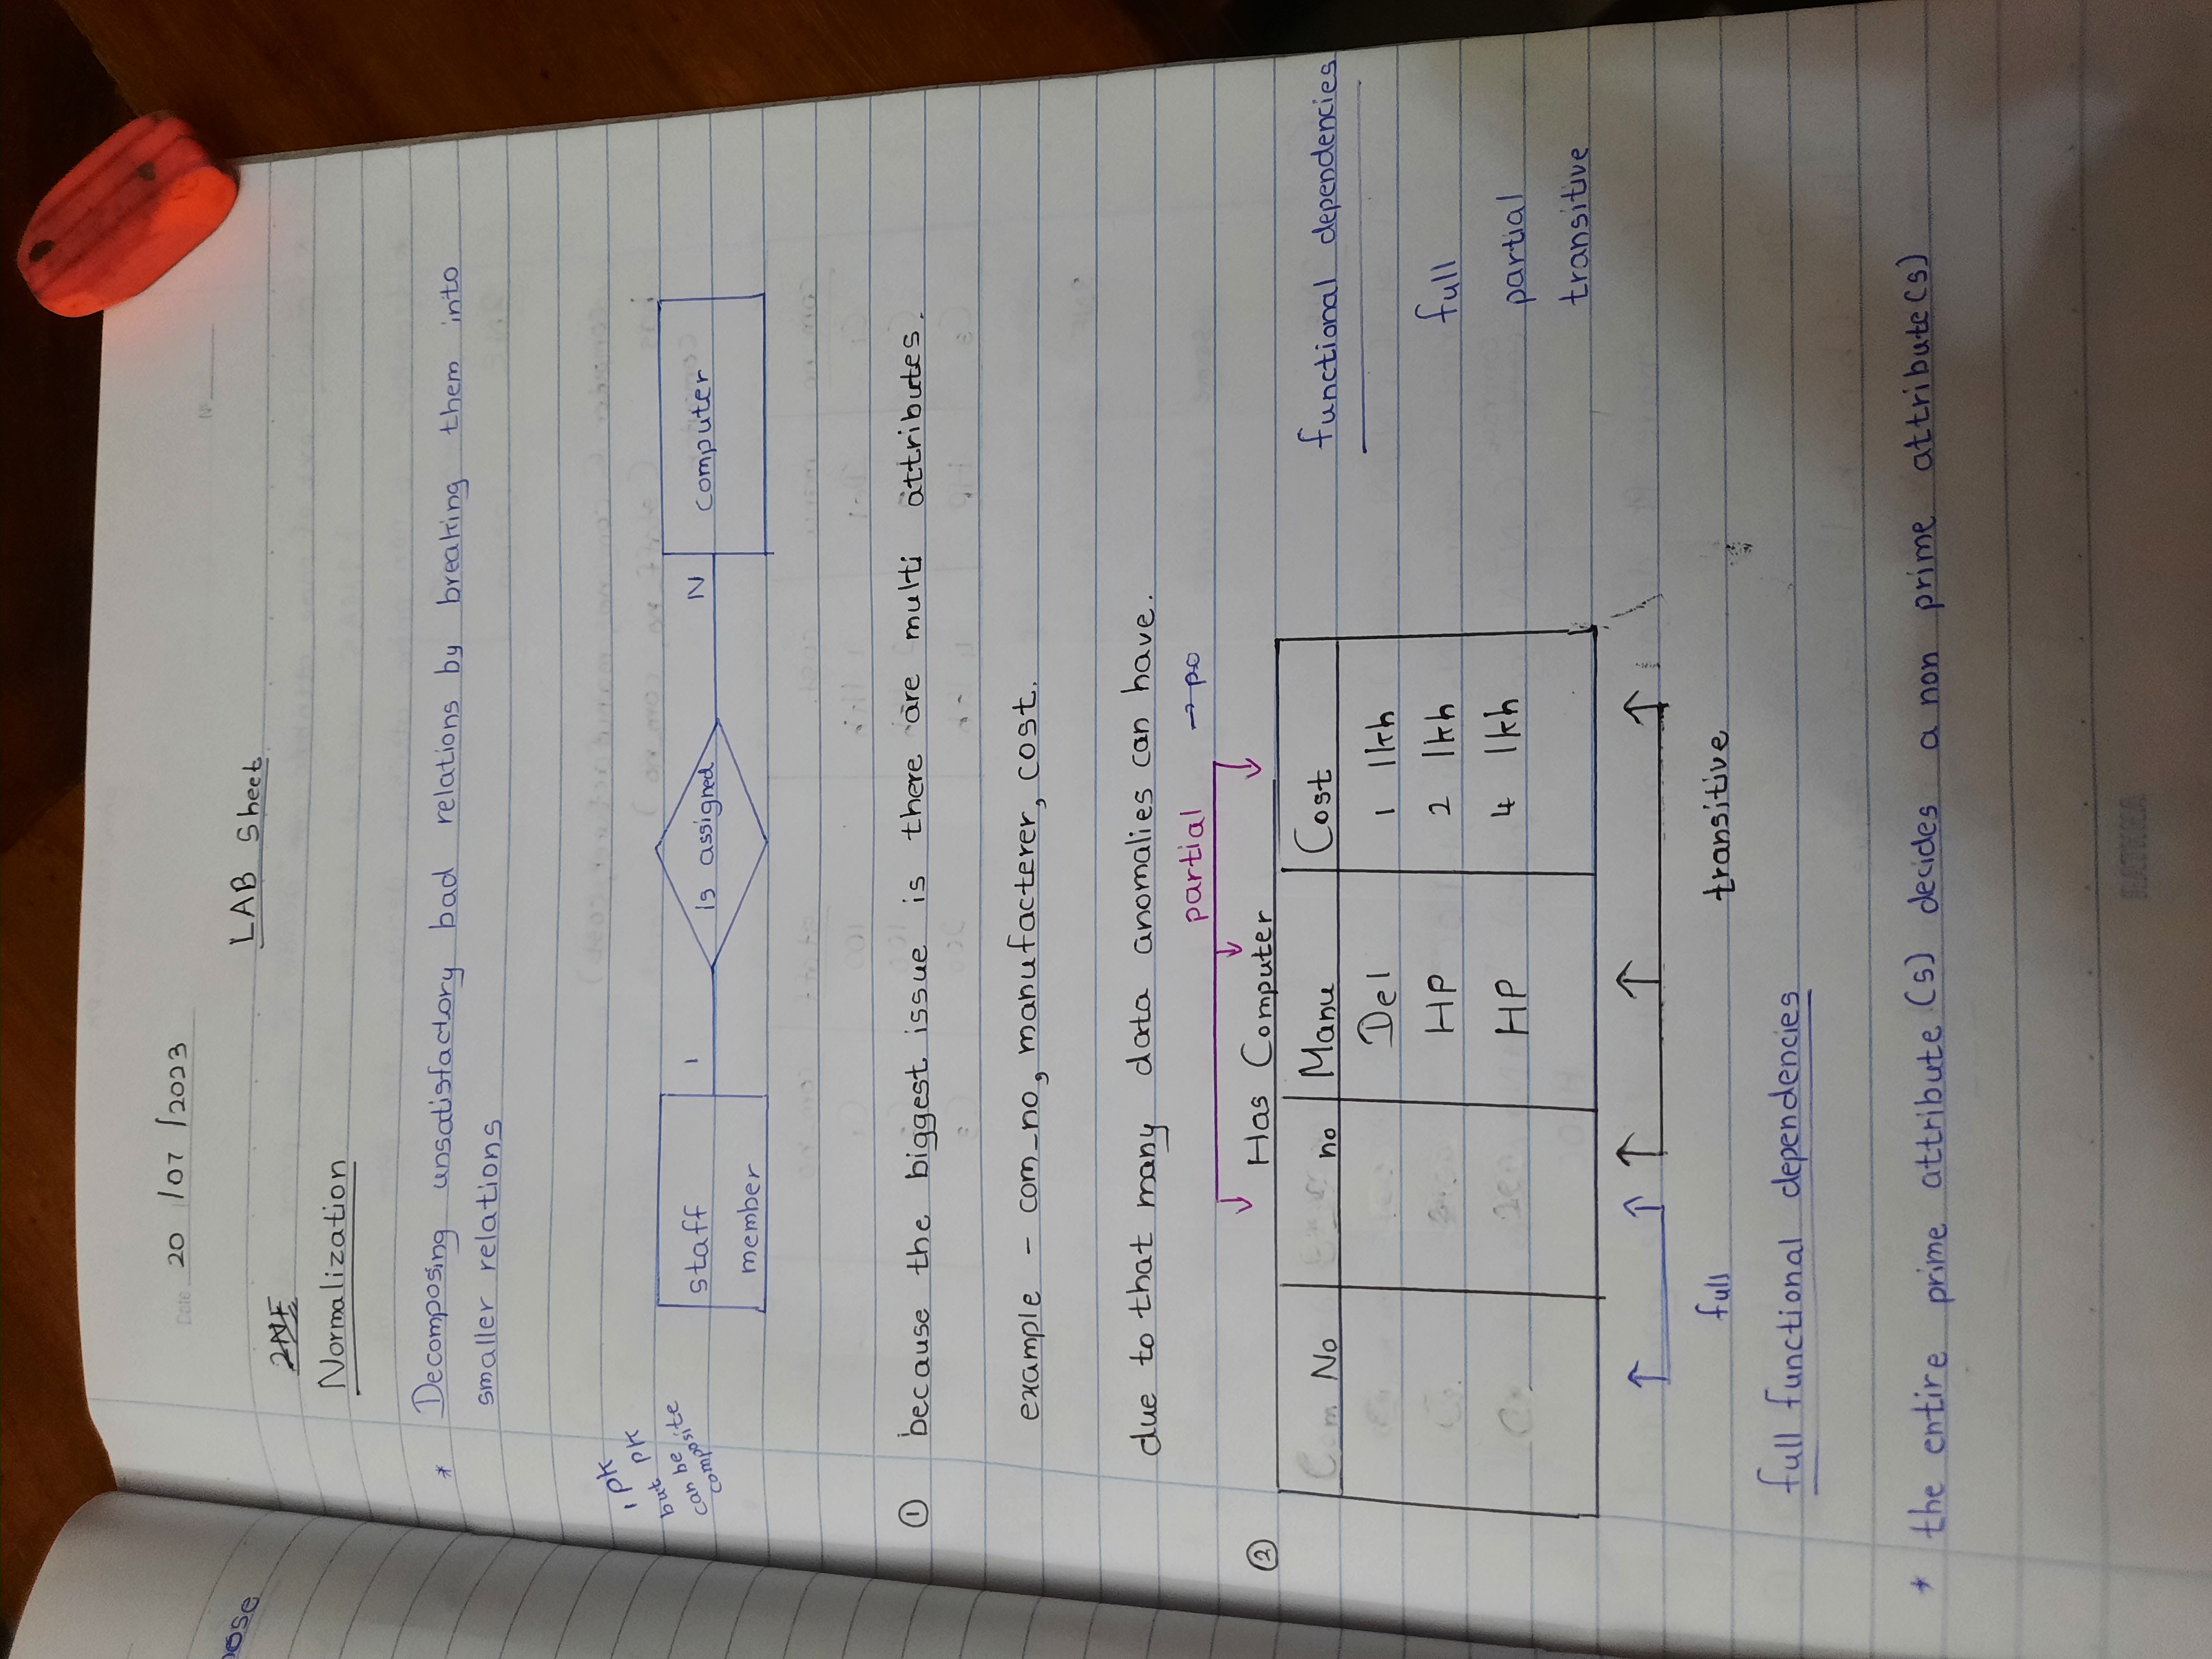 ose
Date 20 /07 /2023
N°
LAB Sheet
2NF
Normalization
* Decomposing unsatisfactory bad relations by breaking them into
smaller relations
1 PK
but PK
can be
composite
staff
member
1
is assigned
N
computer
① because the biggest issue is there are multi attributes.
example - com_no, manufacterer, cost.
due to that many data anomalies can have.
partial → po
② Has Computer
Com No no Manu Cost
Del 1 lkh
HP 2 lkh
HP 4 lkh
functional dependencies
full
partial
transitive
full transitive
full functional dependencies
* the entire prime attribute(s) decides a non prime attribute(s)
RATHNA